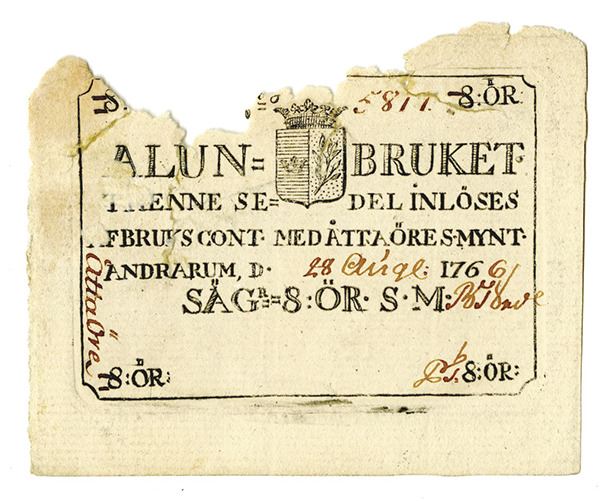 5811. 8:ÖR
ALUN= BRUKET.
THENNE SE= DEL INLÖSES
AFBRUKS CONT. MED ÅTTA ÖRE S.MYNT.
ANDRARUM, D. 28 Augl: 1766
SÄGR=8:ÖR. S.M:
Åtta Öre
8:ÖR: 8:ÖR: